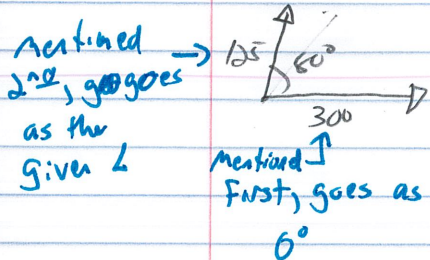 mentioned →
2nd, goes
as the
given ∠
125
80°
300
mentioned
First, goes as
0°